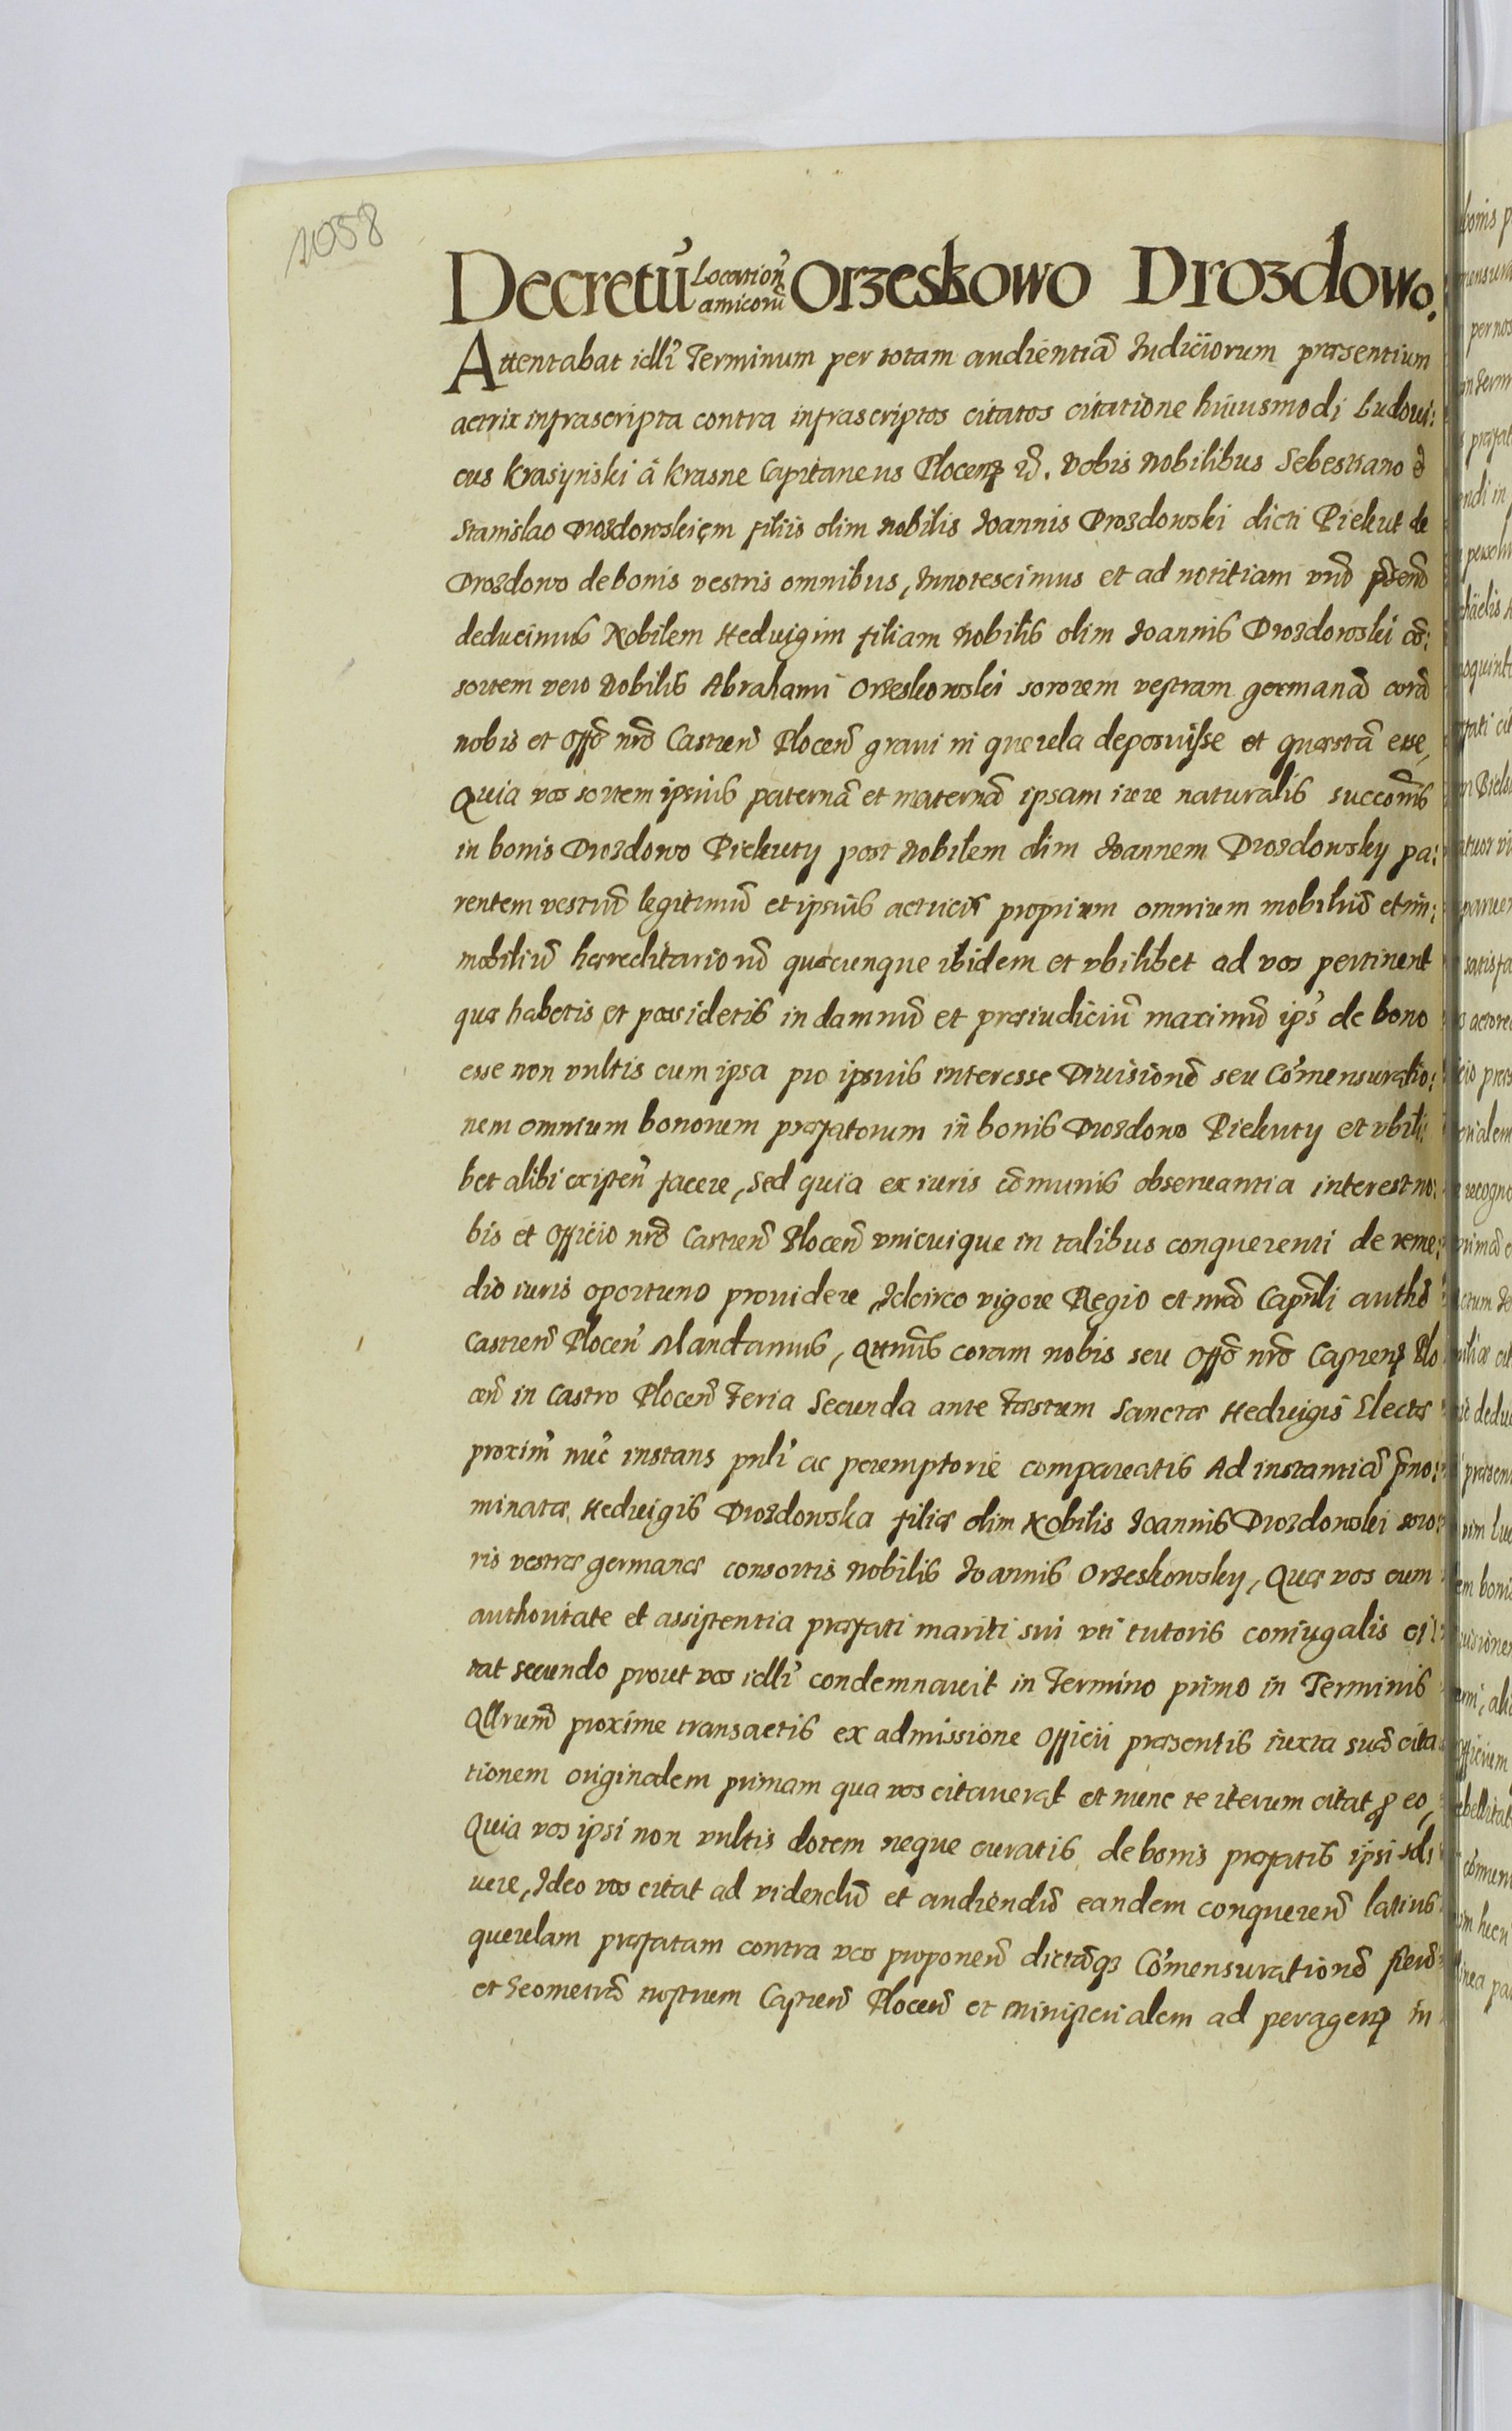 1058
Decretū Locationū amicorū Orzeskowo Drozdowo.
Attentabat idlr̄ Terminum per totam audientiā Iudiciorum præsentium
actrix infrascripta contra infrascriptos citatos citatione huiusmodi Ludoui:
cus Krasyński á Krasne Capitaneus Plocen̄ Vobis Nobilibus Sebestiano et
Stanislao Drozdowskiem filiis olim Nobilis Ioannis Drozdowski dicti Piekut de
Drozdowo de bonis vestris omnibus, Innotescimus et ad notitiam vrā
deducimus Nobilem Hedvigim filiam Nobilis olim Ioannis Drozdowski cō:
sortem vero Nobilis Abrahami Orzeskowski sororem vestram germanā corā
nobis et Offō nrō Castren̄ Plocen̄ graui ni querela deposuisse et quæstā esse,
Quia vos sortem ipsius paternā et maternā ipsam iure naturalis succōnis
in bonis Drozdowo Piekuty post Nobilem olim Ioannem Drozdowsky pa:
rentem vestrū legitimū et ipsius actricis proprium omnium mobiliū et im:
mobiliū hærreditariorū quæcunque ibidem et vbilibet ad vos pertinent
quæ habetis et possidetis in damnū et præiudiciū maximū ips̄ de bono
esse non vultis cum ipsa pro ipsius interesse Diuisionē seu Cōmensuratio:
nem omnium bonorum præfatorum in bonis Drozdowo Piekuty et vbili:
bet alibi existen̄ facere, Sed quia ex iuris cōmunis obseruantia interest no:
bis et Officio nrō Castren̄ Plocen̄ vnicuique in talibus conquerenti de reme:
dio iuris oportuno prouidere, Idcirco vigore Regio et nrā Capnli authē
Castren̄ Plocen̄ Mandamus, Qtnūs coram nobis seu Offō nrō Capten̄ Plo
cen̄ in Castro Plocen̄ Feria Secunda ante Fæstum Sanctæ Hedvigis Electæ
proxim̄ nūc instans pnlr̄ ac peremptorie compareatis Ad instantiā p̄no:
minatæ, Hedvigis Drozdowska filiæ olim Nobilis Ioannis Drozdowski soro:
ris vestræ germanæ consortis Nobilis Ioannis Orzeskowsky, Quæ vos cum
authoritate et assistentia præfati mariti sui vti tutoris coniugalis ci:
tat secundo prout vos idlr̄ condemnauit in Termino primo in Terminis
Qllrum̄ proxime transactis ex admissione Officii præsentis iuxta suā cita
tionem originalem primam qua vos citauerat et nunc te iterum citat p eo,
Quia vos ipsi non vultis dotem neque curatis de bonis præfatis ipsi sol:
uere, Ideo vos citat ad videndū et audiendū eandem conqueren̄ latius
querelam præfatam contra vos proponen̄ dictāq3 Cōmensurationē fien̄
et Geometrā nostrum Castren̄ Plocen̄ et ministerialem ad peragen̄ in